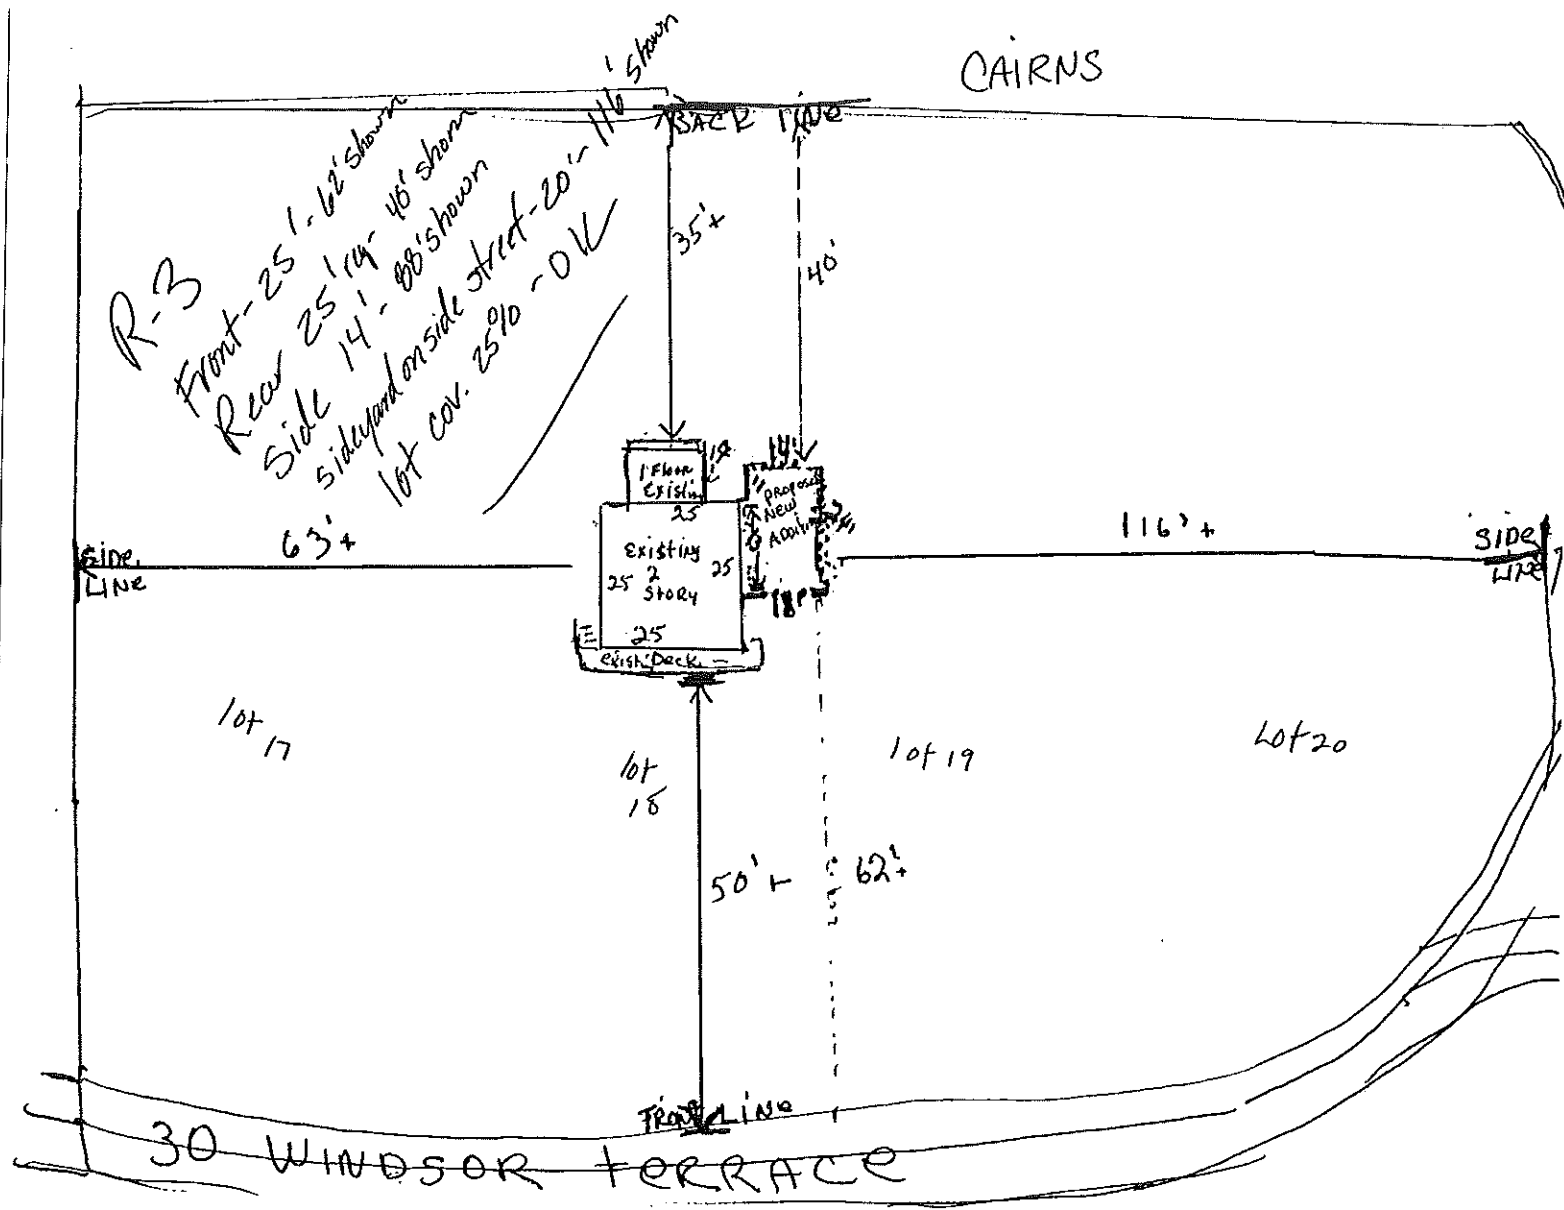 CAIRNS
BACK LINE
R-3
Front - 25' - 62' shown
Rear 25' rq - 40' shown
Side 14' - 88' shown
sideyard on side street - 20' - 116' shown
lot cov. 25% - OK
35'+
40'
1 Floor
Existin
14'
Proposed
NEW
Addition
25
Existing
2
Story
25
25
25
18'
Exist Deck
63'+
116'+
SIDE
LINE
SIDE
LINE
lot
17
lot
18
lot 19
Lot 20
50'+
62'+
FRONT LINE
30 WINDSOR TERRACE